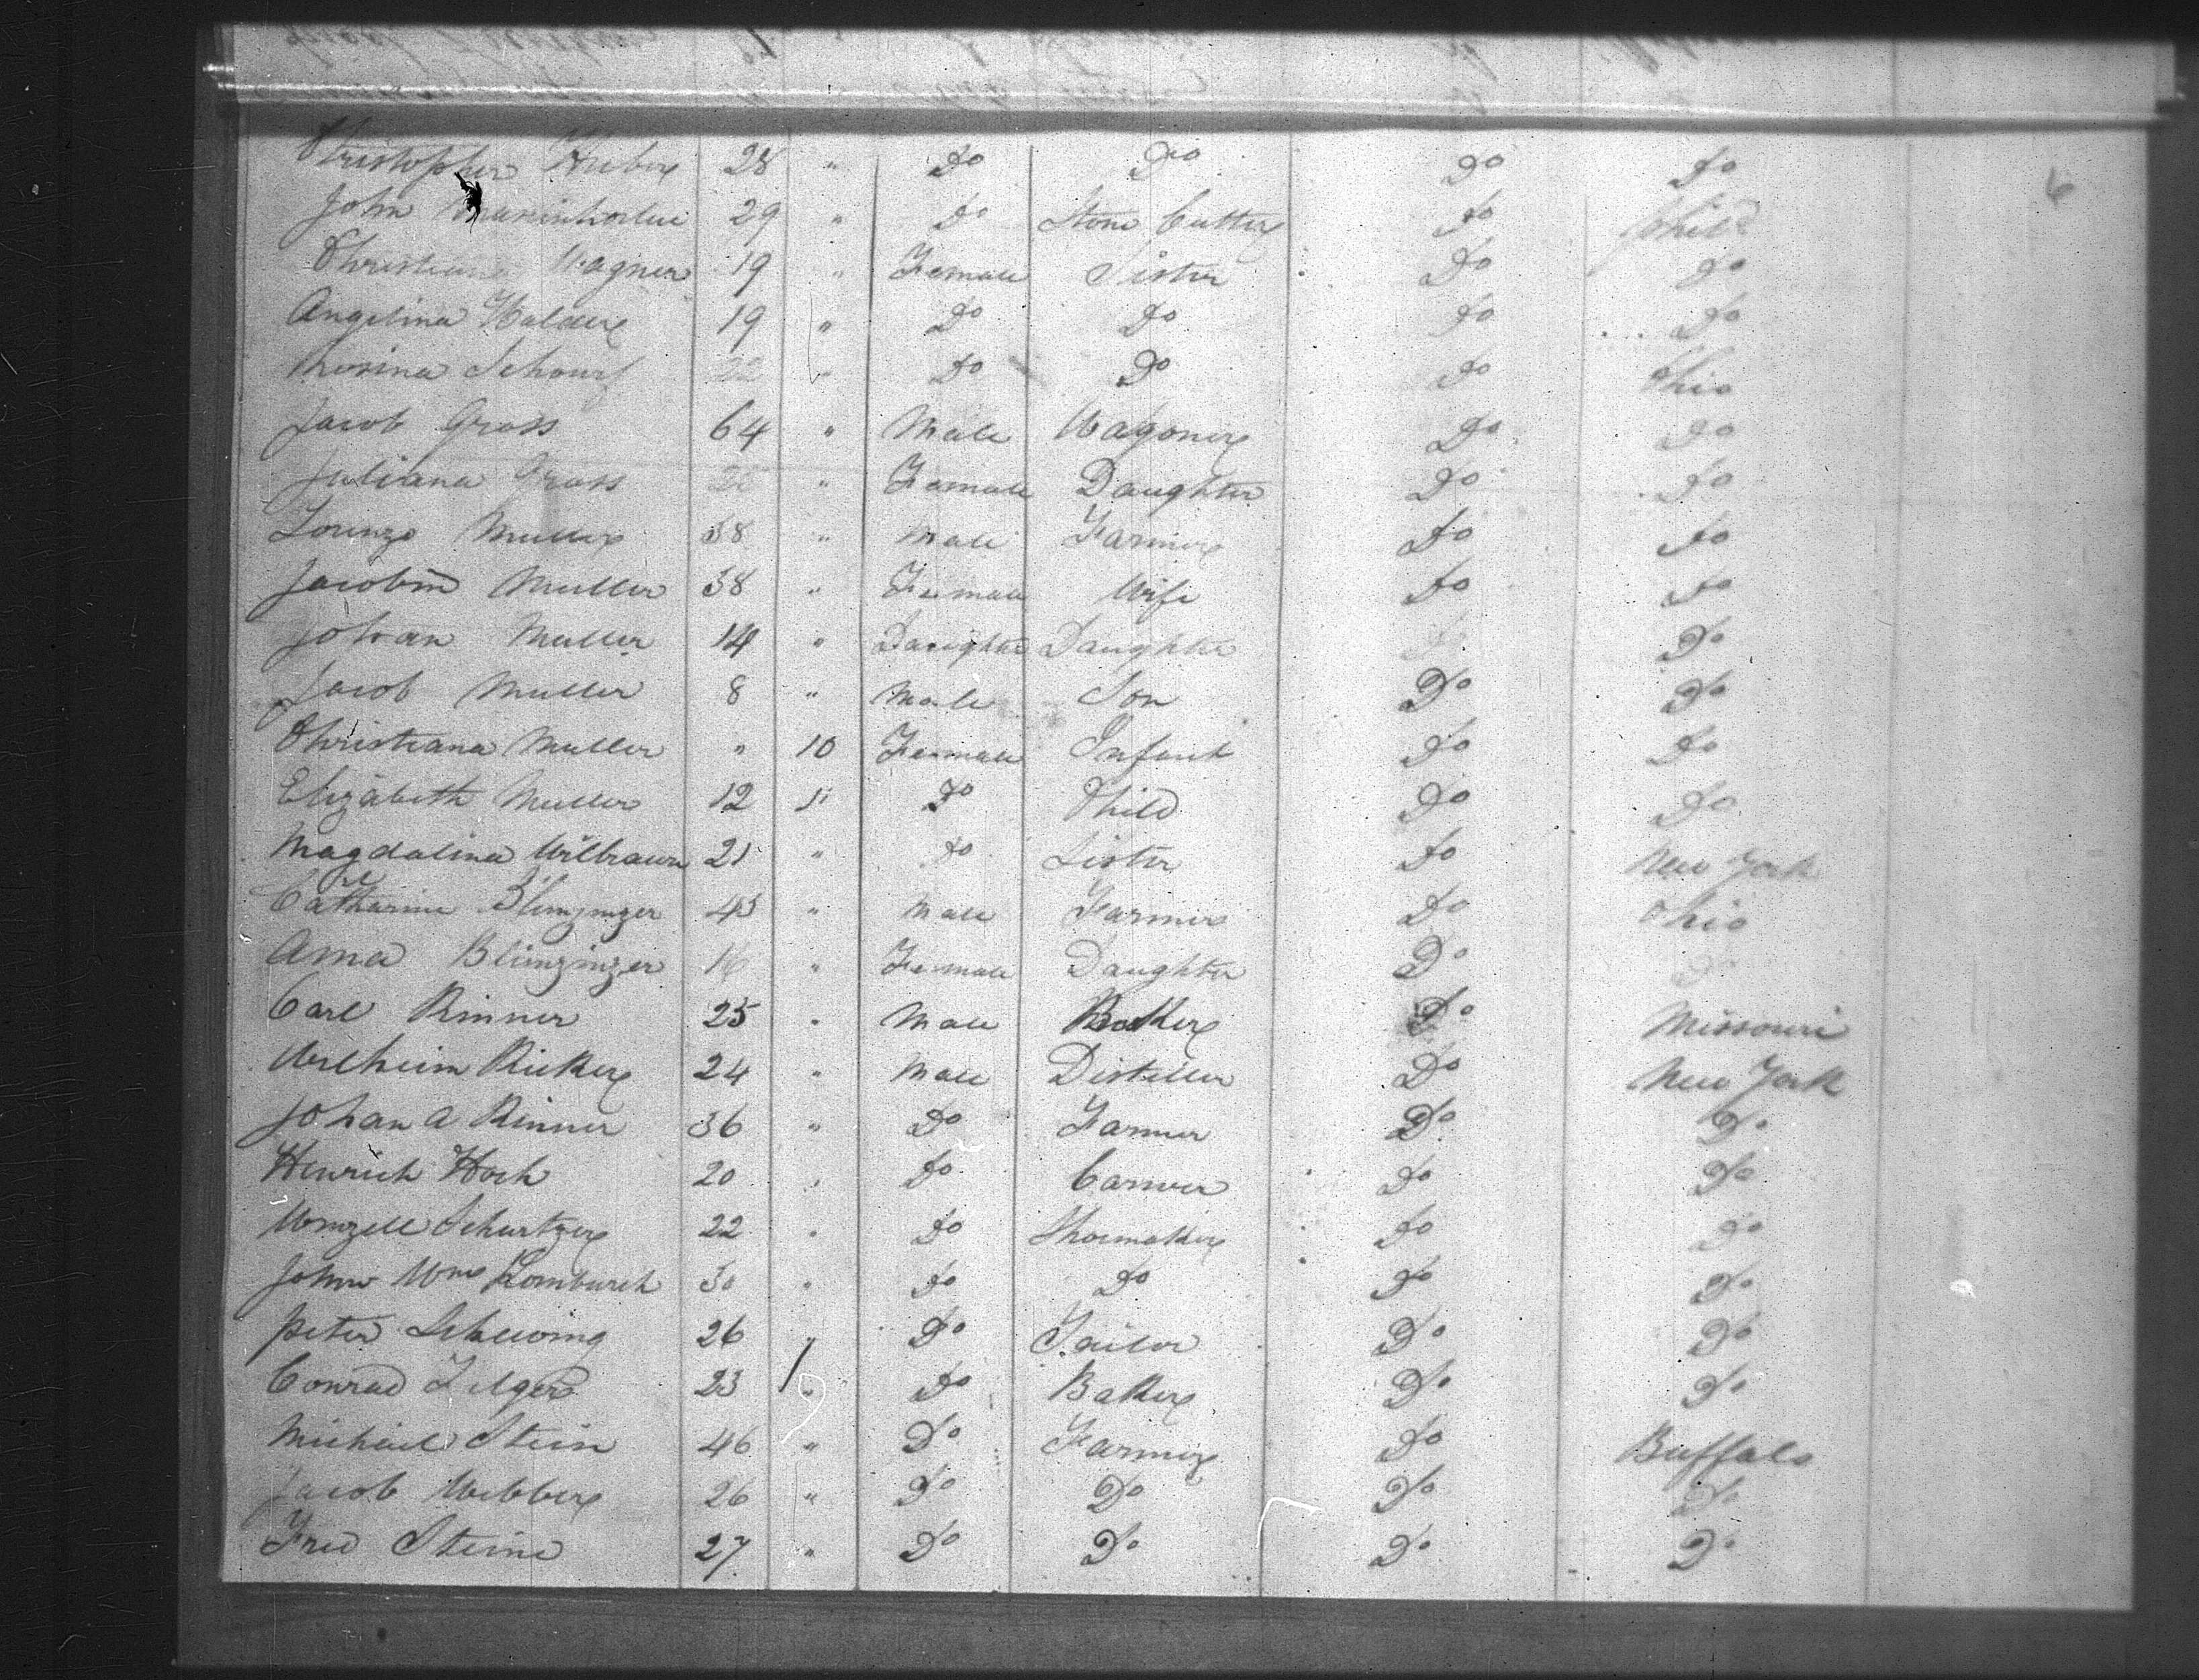 Christopher Huber 28 " Do Do Do Do
John 29 " Do Stone Cutter Do Phila
Christiana Wagner 19 " Female Sister Do Do
Angelina 19 " Do Do Do Do
22 " Do Do Do Ohio
Jacob Grass 64 " Male Wagoner Do Do
Juliana Grass " Female Daughter Do Do
Lorenzo Muller 38 " Male Farmer Do Do
Jacobin Muller 38 " Female Wife Do Do
Johan Muller 14 " Daughter Daughter Do Do
Jacob Muller 8 " Male Son Do Do
Christiana Muller " 10 Female Infant Do Do
Elizabeth Muller 12 " Do Child Do Do
Magdalina Wilbrawn 21 " Do Sister Do New York
Catharine Blinzinger 43 " Male Farmer Do Ohio
Anna Blinzinger 16 " Female Daughter Do Do
Carl Rinner 25 " Male Do Missouri
Wilheim Ricker 24 " Male Distiller Do New York
Johan A Rinner 36 " Do Farmer Do Do
Henrich Hoch 20 " Do Carver Do Do
Wenzell Schurtzer 22 " Do Shoemaker Do Do
John Wm 30 " Do Do Do Do
Peter 26 " Do Tailor Do Do
Conrad 23 " Do Baker Do Do
Michael Stein 46 " Do Farmer Do Buffalo
Jacob Webber 26 " Do Do Do Do
Fred Steine 27 " Do Do Do Do